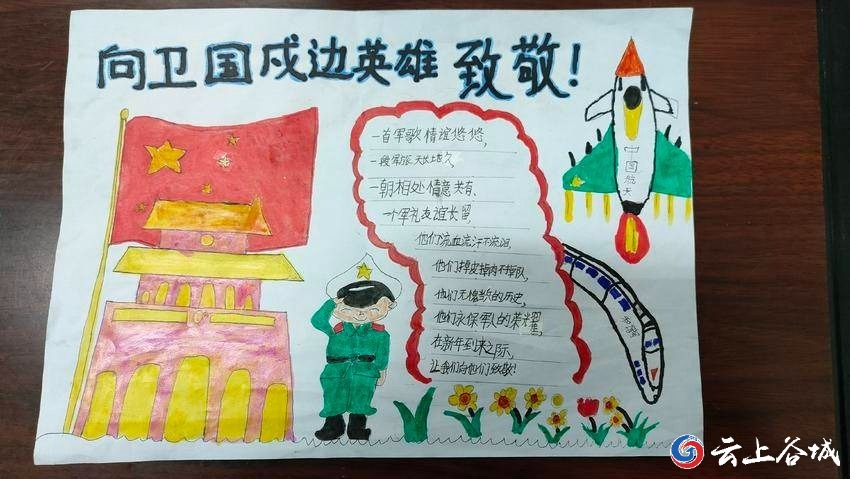 向卫国戍边英雄致敬!
一首军歌情谊悠悠,
一段军旅天长地久,
一朝相处情意共有、
一个军礼友谊长留,
他们流血流汗不流泪,
他们掉皮掉肉不掉队,
他们无愧
的历史,
他们永保军人的荣耀,
在新年到来之际,
让我们向他们致敬!
中国航天
云上谷城